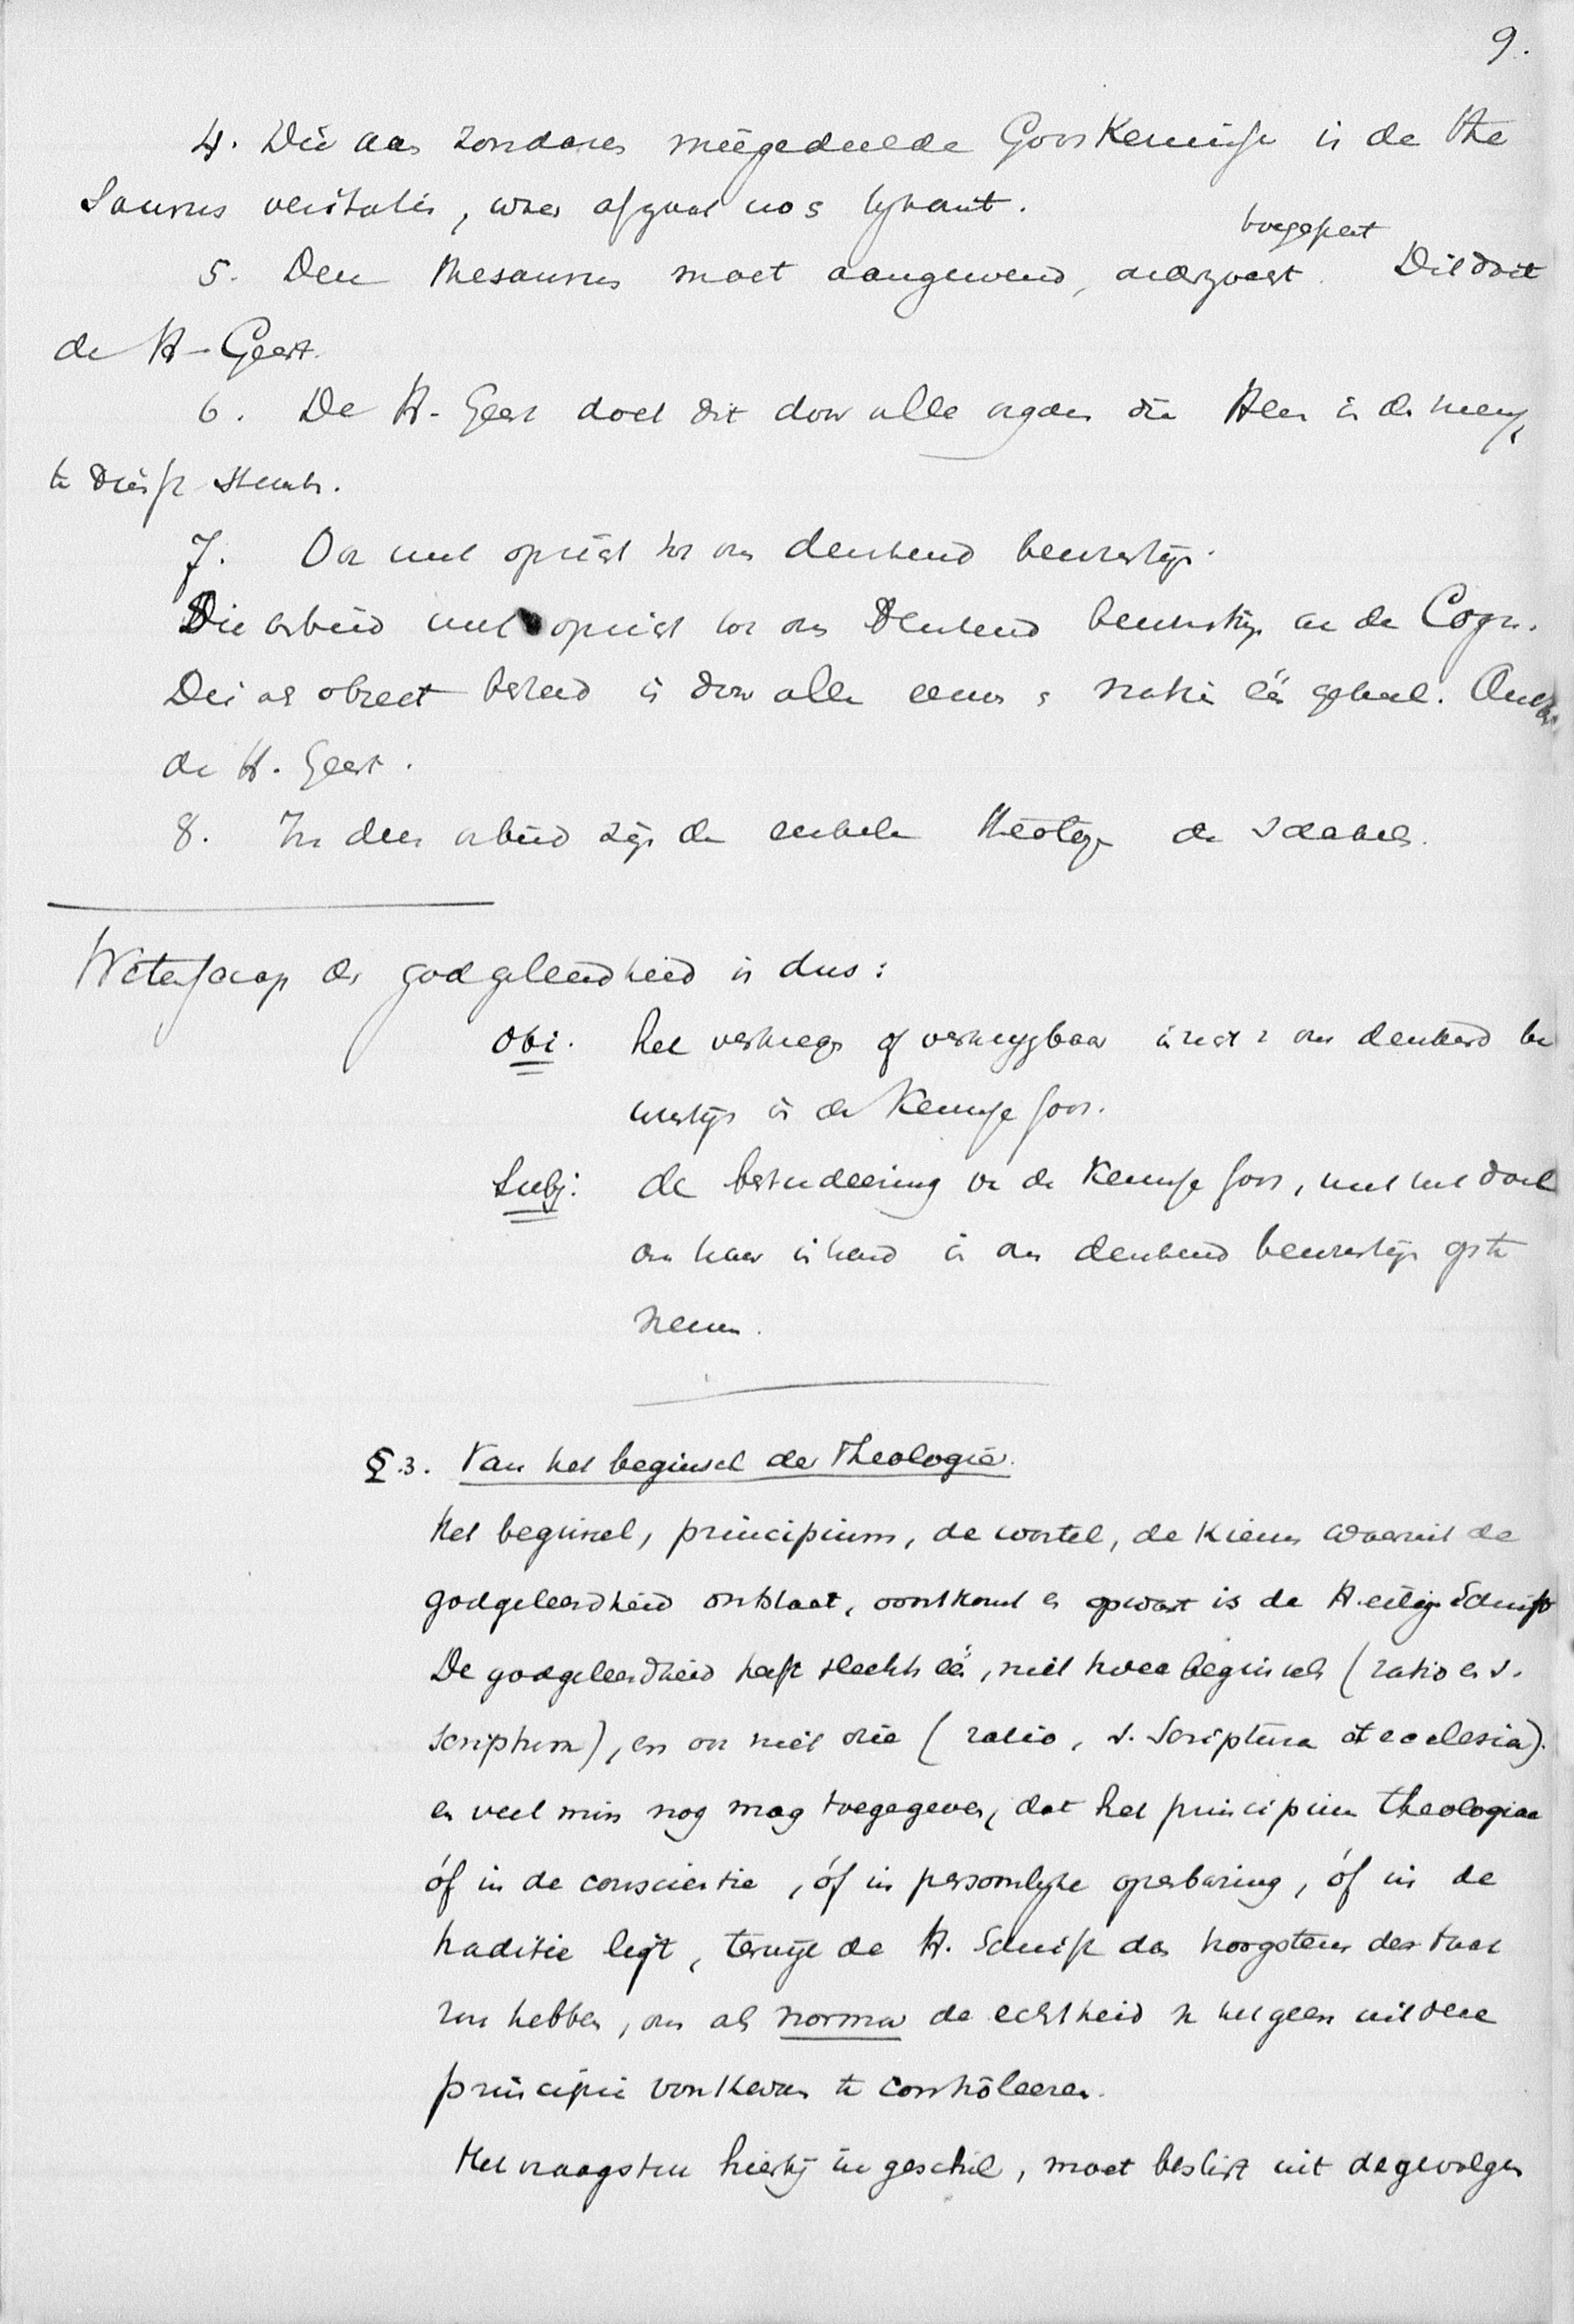 9.
4. Die aan zondaren meêgedeelde Godskennisse is de the
saurus veritatis,
toegepast
5. Deze thesaurus moet aangewend, Dit doet
de H. Geest.
6. De H. Geest doet dit door alle organen die Hem in de
te dienste staan.
7. Ook met opzicht tot ons denkend bewustzijn.
Die arbeid met opzicht tot ons denkend bewustzijn en de Cogn.
Dei als object is door alle eeuwen natie één geheel.
de H. Geest.
8. In deze arbeid zijn de enkele theologen de schakels.
Wetenschap der godgeleerdheid is dus:
Obj. het verkregen of verkrijgbaar inzicht v ons denkend be
wustzijn in de Kennisse Gods.
Subj: de bestudeering van de Kennisse Gods, met het doel
om haar inhoud in ons denkend bewustzijn op te
nemen.
§.3. Van het beginsel der Theologie.
Het beginsel, principium, de wortel, de kiem waaruit de
godgeleerdheid ontstaat, voortkomt en opwast is de Heilige Schrift
De godgeleerdheid heeft slechts één, niet twee beginsels (ratio en s.
scriptura), en ook niet drie (ratio, s. Scriptura et ecclesia).
en veel min nog mag toegegeven, dat het principium theologiae
óf in de conscientie, óf in persoonlijke openbaring, óf in de
traditie ligt, terwijl de H. Schrift dan hoogstens
zou hebben, om als norma de echtheid v hetgeen uit deze
principia voortkwam te contrôleeren.
Het vraagstuk hierbij in geschil, moet beslist uit de gevolgen